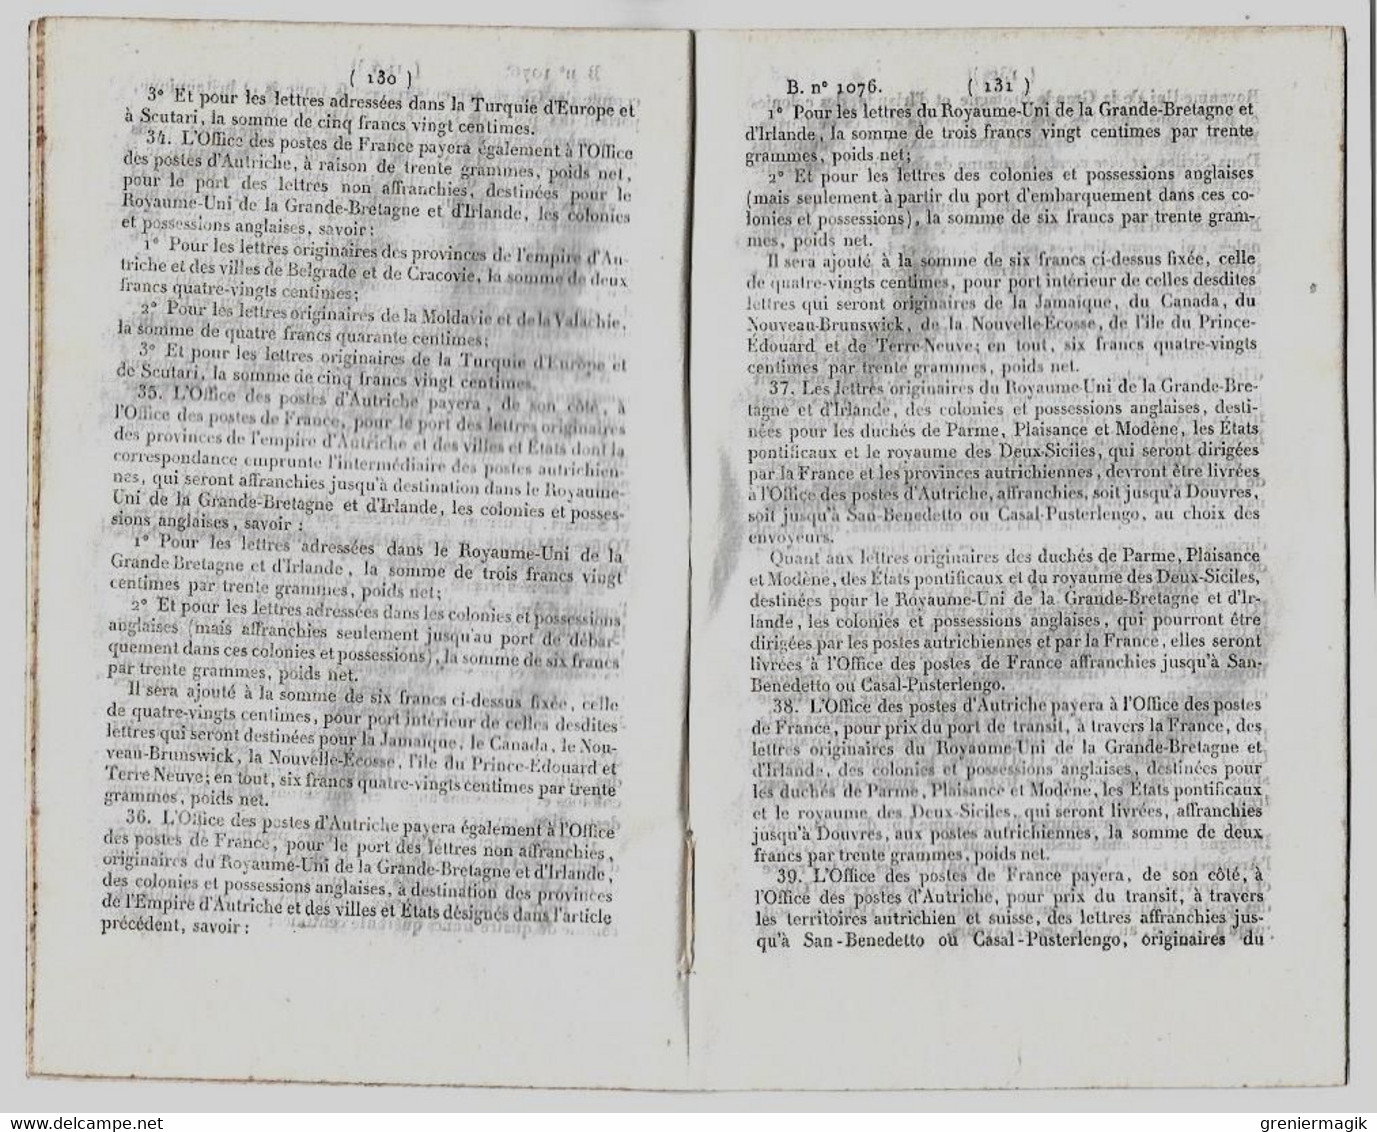 ( 130 )
3° Et pour les lettres adressées dans la Turquie d'Europe et
à Scutari, la somme de cinq francs vingt centimes.
34. L'Office des postes de France payera également à l'Office
des postes d'Autriche, à raison de trente grammes, poids net,
pour le port des lettres non affranchies, destinées pour le
Royaume-Uni de la Grande-Bretagne et d'Irlande, les colonies
et possessions anglaises, savoir :
1° Pour les lettres originaires des provinces de l'empire d'Au-
triche et des villes de Belgrade et de Cracovie, la somme de deux
francs quatre-vingts centimes;
2° Pour les lettres originaires de la Moldavie et de la Valachie,
la somme de quatre francs quarante centimes;
3° Et pour les lettres originaires de la Turquie d'Europe et
de Scutari, la somme de cinq francs vingt centimes.
35. L'Office des postes d'Autriche payera, de son côté, à
l'Office des postes de France, pour le port des lettres originaires
des provinces de l'empire d'Autriche et des villes et États dont la
correspondance emprunte l'intermédiaire des postes autrichien-
nes, qui seront affranchies jusqu'à destination dans le Royaume-
Uni de la Grande-Bretagne et d'Irlande, les colonies et posses-
sions anglaises, savoir :
1° Pour les lettres adressées dans le Royaume-Uni de la
Grande Bretagne et d'Irlande, la somme de trois francs vingt
centimes par trente grammes, poids net;
2° Et pour les lettres adressées dans les colonies et possessions
anglaises (mais affranchies seulement jusqu'au port de débar-
quement dans ces colonies et possessions), la somme de six francs
par trente grammes, poids net.
Il sera ajouté à la somme de six francs ci-dessus fixée, celle
de quatre-vingts centimes, pour port intérieur de celles desdites
lettres qui seront destinées pour la Jamaïque, le Canada, le Nou-
veau-Brunswick, la Nouvelle-Écosse, l'île du Prince-Édouard et
Terre Neuve; en tout, six francs quatre-vingts centimes par trente
grammes, poids net.
36. L'Office des postes d'Autriche payera également à l'Office
des postes de France, pour le port des lettres non affranchies,
originaires du Royaume-Uni de la Grande-Bretagne et d'Irlande,
des colonies et possessions anglaises, à destination des provinces
de l'Empire d'Autriche et des villes et États désignés dans l'article
précédent, savoir :
B. n° 1076. ( 131 )
1° Pour les lettres du Royaume-Uni de la Grande-Bretagne et
d'Irlande, la somme de trois francs vingt centimes par trente
grammes, poids net;
2° Et pour les lettres des colonies et possessions anglaises
(mais seulement à partir du port d'embarquement dans ces co-
lonies et possessions), la somme de six francs par trente gram-
mes, poids net.
Il sera ajouté à la somme de six francs ci-dessus fixée, celle
de quatre-vingts centimes, pour port intérieur de celles desdites
lettres qui seront originaires de la Jamaïque, du Canada, du
Nouveau-Brunswick, de la Nouvelle-Écosse, de l'île du Prince-
Édouard et de Terre-Neuve; en tout, six francs quatre-vingts
centimes par trente grammes, poids net.
37. Les lettres originaires du Royaume-Uni de la Grande-Bre-
tagne et d'Irlande, des colonies et possessions anglaises, desti-
nées pour les duchés de Parme, Plaisance et Modène, les États
pontificaux et le royaume des Deux-Siciles, qui seront dirigées
par la France et les provinces autrichiennes, devront être livrées
à l'Office des postes d'Autriche, affranchies, soit jusqu'à Douvres,
soit jusqu'à San-Benedetto ou Casal-Pusterlengo, au choix des
envoyeurs.
Quant aux lettres originaires des duchés de Parme, Plaisance
et Modène, des États pontificaux et du royaume des Deux-Siciles,
destinées pour le Royaume-Uni de la Grande-Bretagne et d'Ir-
lande, les colonies et possessions anglaises, qui pourront être
dirigées par les postes autrichiennes et par la France, elles seront
livrées à l'Office des postes de France affranchies jusqu'à San-
Benedetto ou Casal-Pusterlengo.
38. L'Office des postes d'Autriche payera à l'Office des postes
de France, pour prix du port de transit, à travers la France, des
lettres originaires du Royaume-Uni de la Grande-Bretagne et
d'Irlande, des colonies et possessions anglaises, destinées pour
les duchés de Parme, Plaisance et Modène, les États pontificaux
et le royaume des Deux-Siciles, qui seront livrées, affranchies
jusqu'à Douvres, aux postes autrichiennes, la somme de deux
francs par trente grammes, poids net.
39. L'Office des postes de France payera, de son côté, à
l'Office des postes d'Autriche, pour prix du transit, à travers
les territoires autrichien et suisse, des lettres affranchies jus-
qu'à San-Benedetto ou Casal-Pusterlengo, originaires du
www.delcampe.net
greniermagik